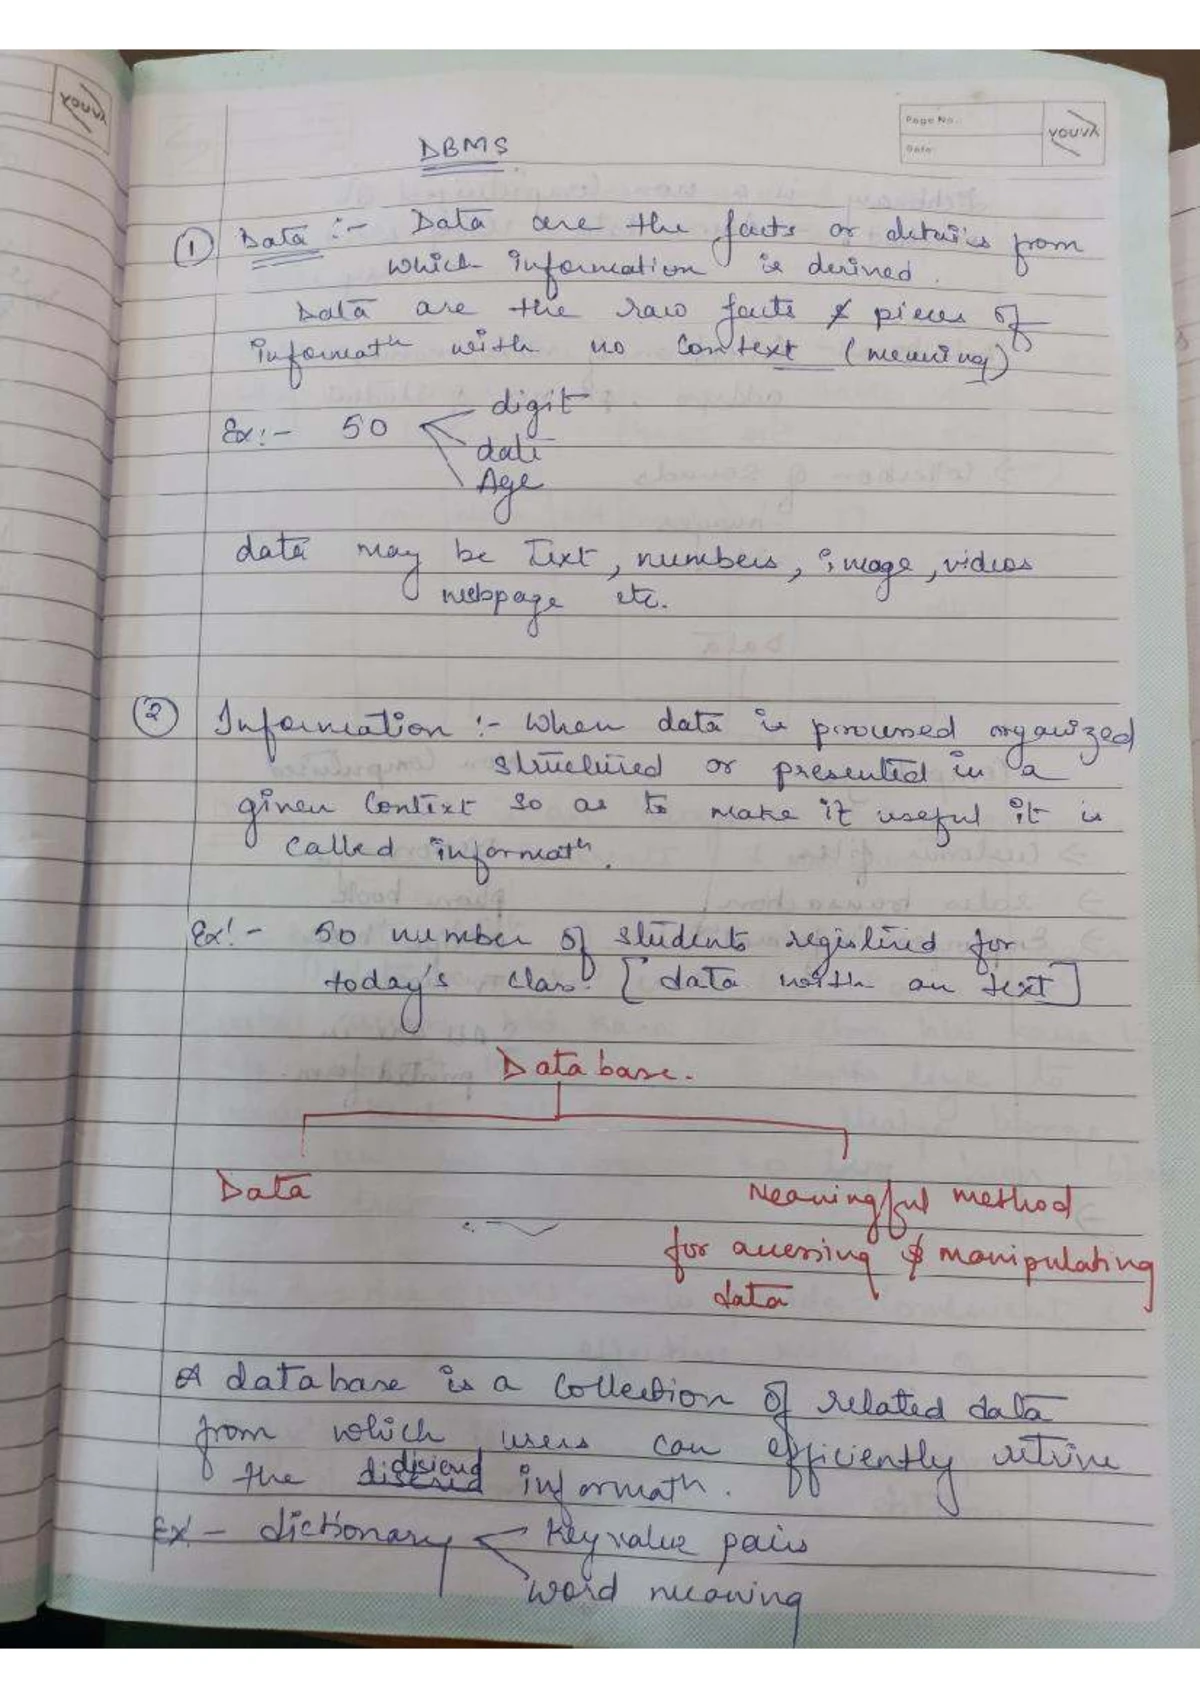 youva
Page No.:
Date:
youva
DBMS
① Data :- Data are the facts or details from
which information is derived.
Data are the raw facts & pieces of
informatⁿ with no context (meaning)
Ex:- 50 digit
date
Age
data may be Text, numbers, image, videos
webpage etc.
② Information :- When data is processed organized
structured or presented in a
given Context so as to make it useful it is
called informatⁿ.
Ex:- 50 number of students registered for
today's class. [data with an text]
Database.
Data
Meaningful method
for accessing & manipulating
data
A database is a collection of related data
from which users can efficiently retrive
the informatⁿ.
Ex - dictionary Key value pairs
word meaning